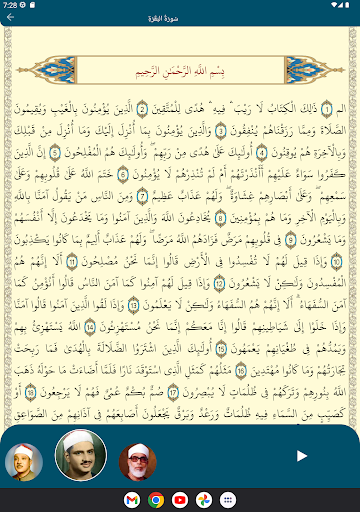 7:28
سُورَةُ البَقَرَةِ
بِسْمِ اللَّهِ الرَّحْمَٰنِ الرَّحِيمِ
الم ① ذَٰلِكَ الْكِتَابُ لَا رَيْبَ ۛ فِيهِ ۛ هُدًى لِلْمُتَّقِينَ ② الَّذِينَ يُؤْمِنُونَ بِالْغَيْبِ وَيُقِيمُونَ
الصَّلَاةَ وَمِمَّا رَزَقْنَاهُمْ يُنْفِقُونَ ③ وَالَّذِينَ يُؤْمِنُونَ بِمَا أُنْزِلَ إِلَيْكَ وَمَا أُنْزِلَ مِنْ قَبْلِكَ
وَبِالْآخِرَةِ هُمْ يُوقِنُونَ ④ أُولَٰئِكَ عَلَىٰ هُدًى مِنْ رَبِّهِمْ ۖ وَأُولَٰئِكَ هُمُ الْمُفْلِحُونَ ⑤ إِنَّ الَّذِينَ
كَفَرُوا سَوَاءٌ عَلَيْهِمْ أَأَنْذَرْتَهُمْ أَمْ لَمْ تُنْذِرْهُمْ لَا يُؤْمِنُونَ ⑥ خَتَمَ اللَّهُ عَلَىٰ قُلُوبِهِمْ وَعَلَىٰ
سَمْعِهِمْ ۖ وَعَلَىٰ أَبْصَارِهِمْ غِشَاوَةٌ ۖ وَلَهُمْ عَذَابٌ عَظِيمٌ ⑦ وَمِنَ النَّاسِ مَنْ يَقُولُ آمَنَّا بِاللَّهِ
وَبِالْيَوْمِ الْآخِرِ وَمَا هُمْ بِمُؤْمِنِينَ ⑧ يُخَادِعُونَ اللَّهَ وَالَّذِينَ آمَنُوا وَمَا يَخْدَعُونَ إِلَّا أَنْفُسَهُمْ
وَمَا يَشْعُرُونَ ⑨ فِي قُلُوبِهِمْ مَرَضٌ فَزَادَهُمُ اللَّهُ مَرَضًا ۖ وَلَهُمْ عَذَابٌ أَلِيمٌ بِمَا كَانُوا يَكْذِبُونَ
⑩ وَإِذَا قِيلَ لَهُمْ لَا تُفْسِدُوا فِي الْأَرْضِ قَالُوا إِنَّمَا نَحْنُ مُصْلِحُونَ ⑪ أَلَا إِنَّهُمْ هُمُ
الْمُفْسِدُونَ وَلَٰكِنْ لَا يَشْعُرُونَ ⑫ وَإِذَا قِيلَ لَهُمْ آمِنُوا كَمَا آمَنَ النَّاسُ قَالُوا أَنُؤْمِنُ كَمَا
آمَنَ السُّفَهَاءُ ۗ أَلَا إِنَّهُمْ هُمُ السُّفَهَاءُ وَلَٰكِنْ لَا يَعْلَمُونَ ⑬ وَإِذَا لَقُوا الَّذِينَ آمَنُوا قَالُوا آمَنَّا
وَإِذَا خَلَوْا إِلَىٰ شَيَاطِينِهِمْ قَالُوا إِنَّا مَعَكُمْ إِنَّمَا نَحْنُ مُسْتَهْزِئُونَ ⑭ اللَّهُ يَسْتَهْزِئُ بِهِمْ
وَيَمُدُّهُمْ فِي طُغْيَانِهِمْ يَعْمَهُونَ ⑮ أُولَٰئِكَ الَّذِينَ اشْتَرَوُا الضَّلَالَةَ بِالْهُدَىٰ فَمَا رَبِحَتْ
تِجَارَتُهُمْ وَمَا كَانُوا مُهْتَدِينَ ⑯ مَثَلُهُمْ كَمَثَلِ الَّذِي اسْتَوْقَدَ نَارًا فَلَمَّا أَضَاءَتْ مَا حَوْلَهُ ذَهَبَ
اللَّهُ بِنُورِهِمْ وَتَرَكَهُمْ فِي ظُلُمَاتٍ لَا يُبْصِرُونَ ⑰ صُمٌّ بُكْمٌ عُمْيٌ فَهُمْ لَا يَرْجِعُونَ ⑱ أَوْ
كَصَيِّبٍ مِنَ السَّمَاءِ فِيهِ ظُلُمَاتٌ وَرَعْدٌ وَبَرْقٌ يَجْعَلُونَ أَصَابِعَهُمْ فِي آذَانِهِمْ مِنَ الصَّوَاعِقِ